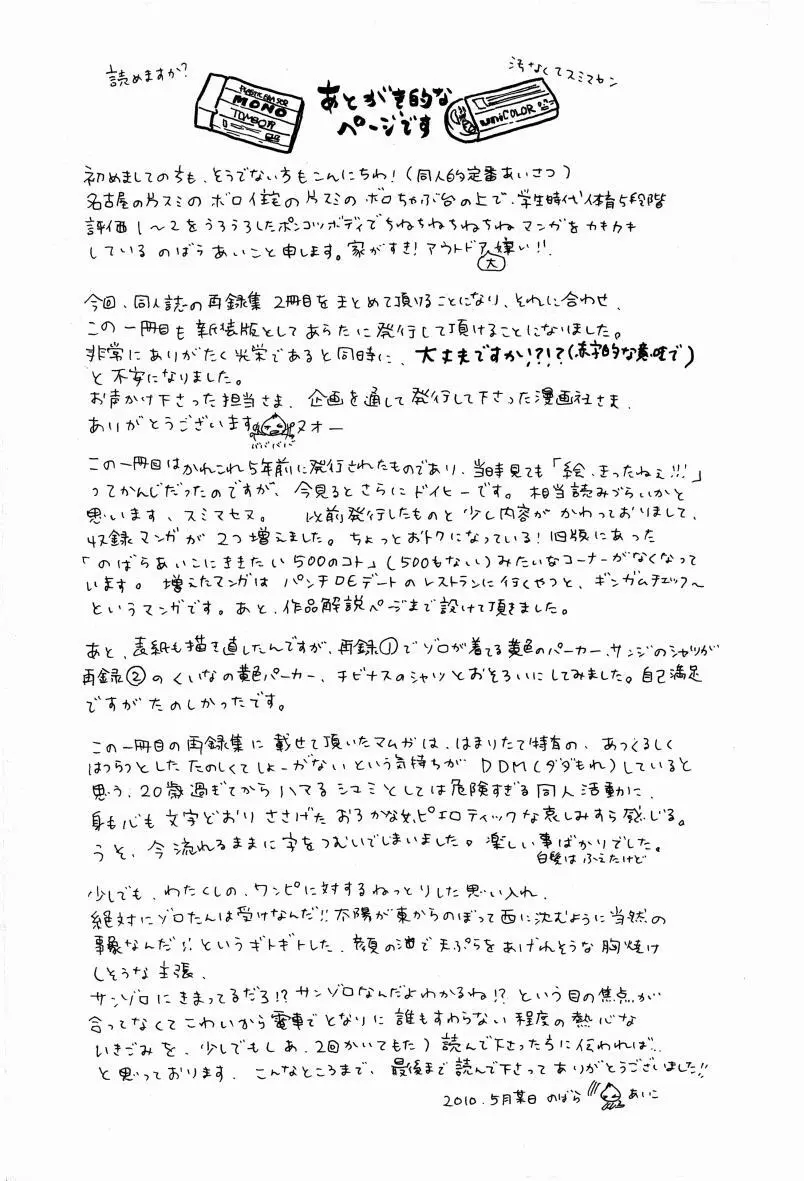 読めますか?
汚なくてスミマセン
PLASTIC ERASER
MONO
TOMBOW
あとがき的な
ページです
uni COLOR
初めましての方も、そうでない方もこんにちわ!(同人的定番あいさつ)
名古屋の片スミのボロ住宅の片スミのボロちゃぶ台の上で、学生時代体育5段階
評価1〜2をうろうろしたポンコツボディでちねちねちねちねマンガをカキカキ
しているのばらあいこと申します。家がすき!アウトドア大嫌い!!
今回、同人誌の再録集2冊目をまとめて頂けることになり、それに合わせ、
この一冊目も新装版としてあらたに発行して頂けることになりました。
非常にありがたく光栄であると同時に、大丈夫ですか!?!?(赤字的な意味で)
と不安になりました。
お声かけ下さった担当さま、企画を通して発行して下さった漫画社さま、
ありがとうございます ヌオー
この一冊目はかれこれ5年前に発行されたものであり、当時見ても「絵、きったねぇ!!!」
ってかんじだったのですが、今見るとさらにドイヒーです。相当読みづらいかと
思います、スミマセヌ。以前発行したものと少し内容がかわっておりまして、
収録マンガが2つ増えました。ちょっとおトクになっている!旧版にあった
「のばらあいこにききたい500のコト」(500もない)みたいなコーナーがなくなって
います。増えたマンガはパンチDEデートのレストランに行くやつと、ギンガムチェック〜
というマンガです。あと、作品解説ページまで設けて頂きました。
あと、表紙も描き直したんですが、再録①でゾロが着てる黄色のパーカー、サンジのシャツが
再録②のくいなの黄色パーカー、チビナスのシャツとおそろいにしてみました。自己満足
ですがたのしかったです。
この一冊目の再録集に載せて頂いたマムガは、はまりたて特有の、あっくるしく
はつらつとしたたのしくてしょーがないという気持ちがDDM(ダダもれ)していると
思う、20歳過ぎてからハマるシュミとしては危険すぎる同人活動に、
身も心も文字どおりささげたおろかな女、ピエロティックな哀しみすら感じる。
うそ、今流れるままに字をつむいでしまいました。楽しい事ばかりでした。
白髪はふえたけど
少しでも、わたくしの、ワンピに対するねっとりした思い入れ、
絶対にゾロたんは受けなんだ!!太陽が東からのぼって西に沈むように当然の
事象なんだ!!というギトギトした、顔の油で天ぷらをあげれそうな胸焼け
しそうな主張、
サンゾロにきまってるだろ!?サンゾロなんだよわかるね!?という目の焦点が
合ってなくてこわいから電車でとなりに誰もすわらない程度の熱心な
いきごみを、少しでも(しあ、2回かいてもた)読んで下さった方に伝われば…
と思っております、こんなところまで、最後まで読んで下さってありがとうございました!!
2010.5月某日 のばら あいこ